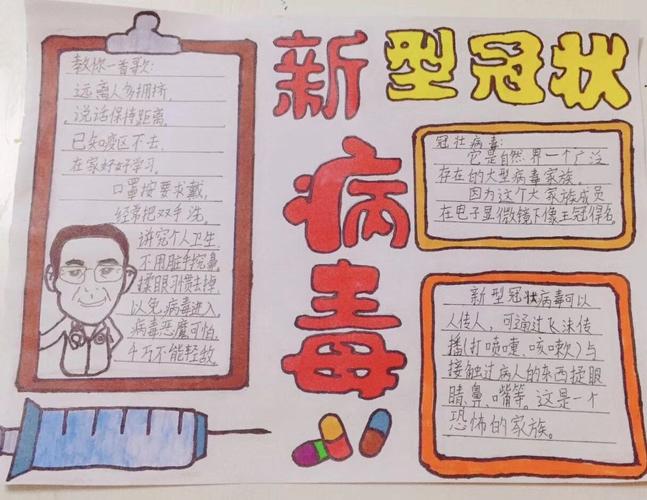 新型冠状
病毒
教你一首歌:
远离人多拥挤,
说话保持距离,
已知疫区不去,
在家好好学习。
口罩按要求戴,
经常把双手洗。
讲究个人卫生
不用脏手挖鼻,
揉眼习惯去掉
以免病毒进入,
病毒恶魔可怕,
千万不能轻敌。
冠壮病毒:
它是自然界一个广泛
存在的大型病毒家族。
因为这个大家族成员
在电子显微镜下像王冠得名。
新型冠状病毒可以
人传人,可通过飞沫传
播(打喷嚏、咳嗽)与
接触过病人的东西揉眼
睛、鼻、嘴等。这是一个
恐怖的家族。